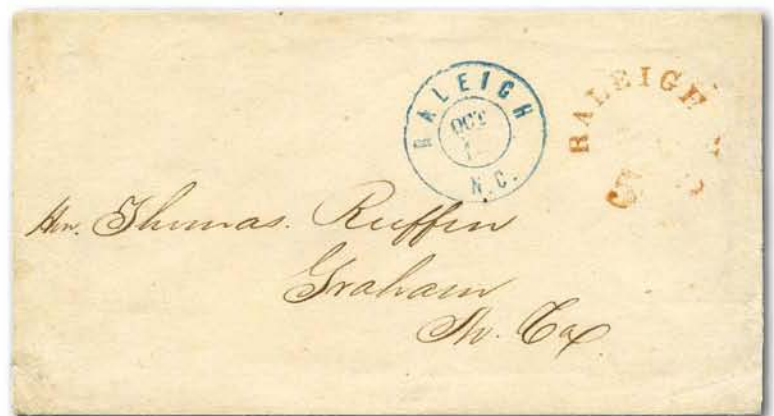 RALEIGH
OCT
N.C.
RALEIGH
Hon. Thomas. Ruffin
Graham
No. Ca